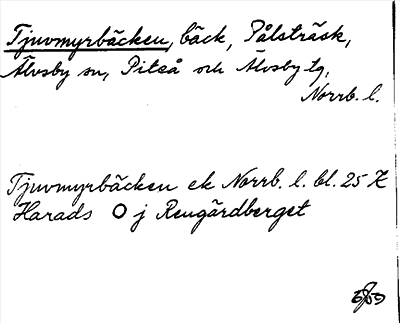 Tjuvmyrbäcken, bäck, Pålsträsk,
Älvsby sn, Piteå och Älvsby tg,
Norrb. l.
Tjuvmyrbäcken ek Norrb. l. bl. 25 K
Harads O j Rengårdberget